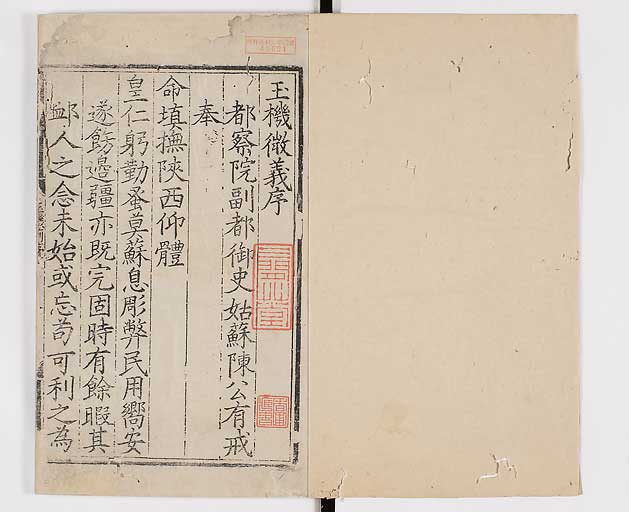 玉機微義序
都察院副都御史姑蘇陳公有戒
奉
命填撫陝西仰體
皇仁躬勤蚤莫蘇息彫弊民用嚮安
遂飭邊疆亦既完固時有餘暇其
卹人之念未始或忘苟可利之為